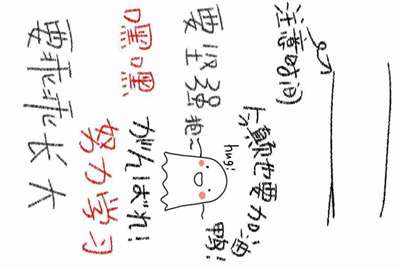 注意时间
也要加油鸭!
hug!
抱~
要坚强
嘿嘿
がんばれ!
努力学习
要乖乖长大